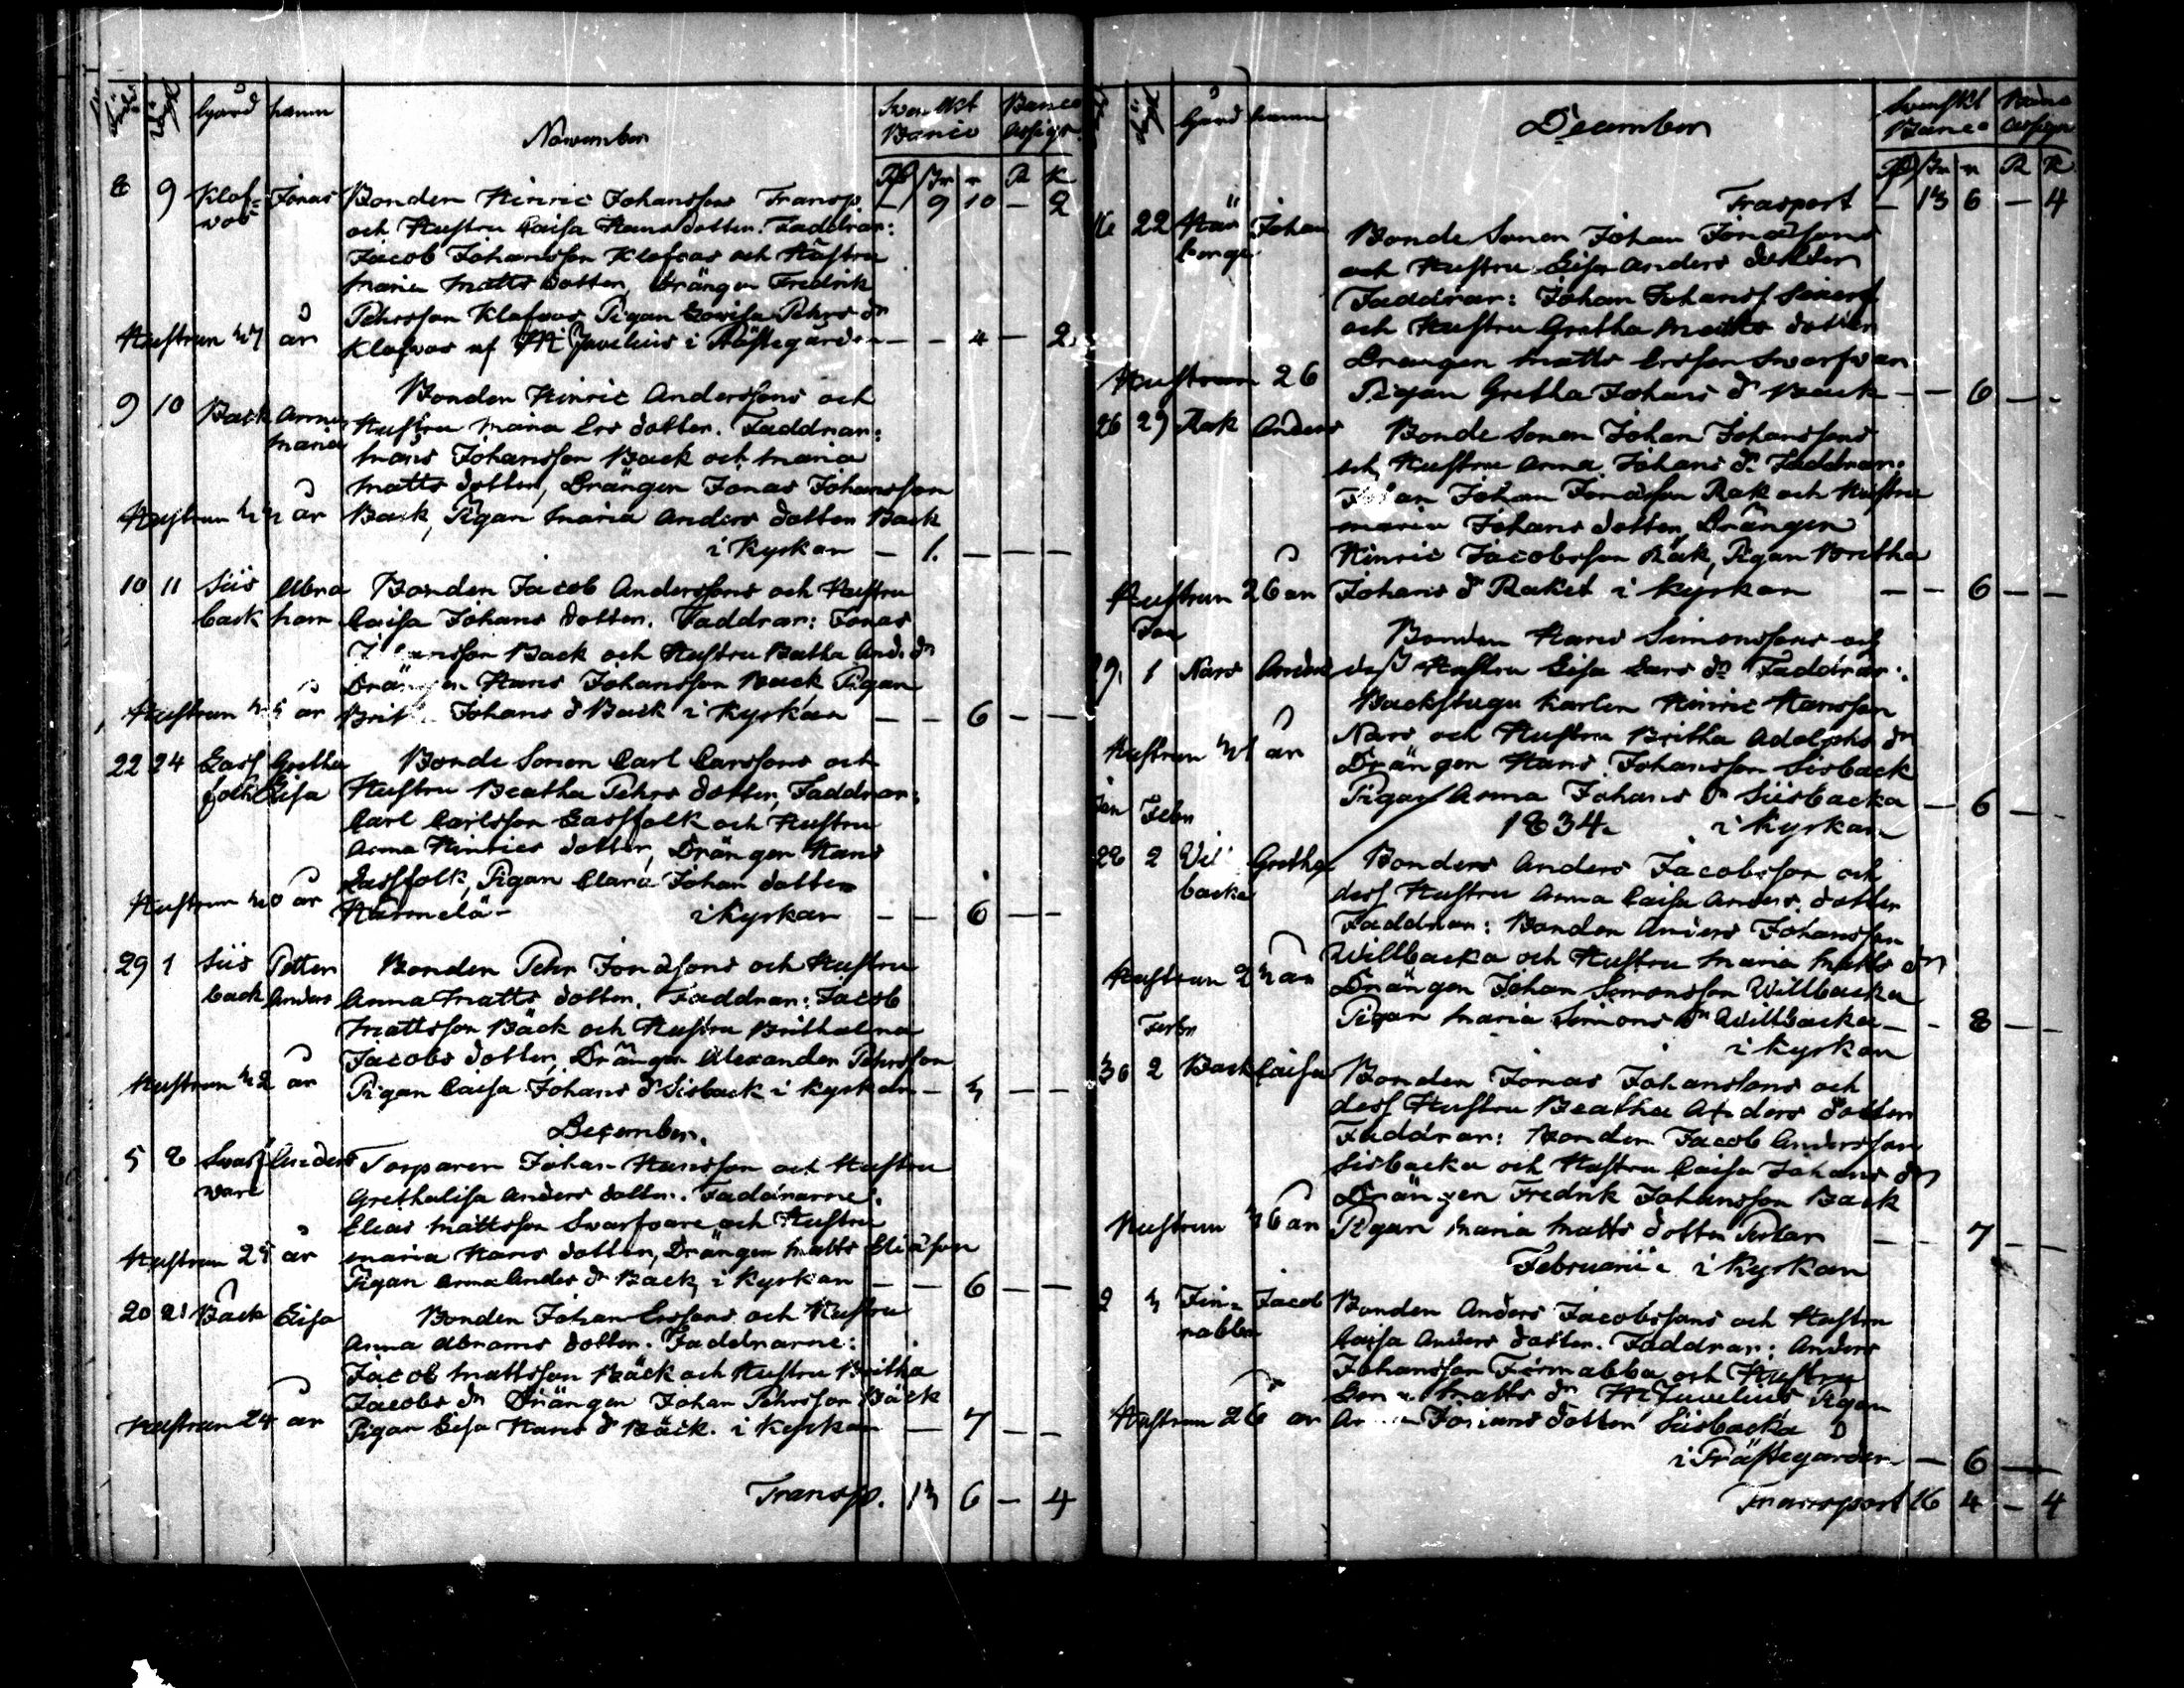 Gård namn November Banco
8 9 Klaf= Jonas Bonden Hinric Johanssons Transp. – 9 10 – 2
wos och Hustru Caisa Hans dotter. Faddrar:
Jacob Johansson Klafwas och Hustru
Maria Matts dotter, Drängen Fredrik
Pehrsson Klafwas Pigan Lovisa Pehrs dr
Hustrun år Klafwas af Juvelius i Prästegården – – 4 – 2
Bonden Hinric Anderssons och
9 10 Back Anna Hustru Maria Ers dotter. Faddrar:
Maria Mats Johansson Back och Maria
Matts dotter, Drängen Jonas Johansson
Hustrun år Back, Pigan Maria Anders dotter Back
i Kyrkan – 1. – – –
10 11 Siis Abra Bonden Jacob Anderssons och Hustru
back ham Caisa Johans dotter. Faddrar: Jonas
Back och Hustru Beatha And. dr
Drängen Hans Johansson Back Pigan
Hustrun år Johans d Back i Kyrkan – – 6 – –
22 24 Lass Gretha Bonde Sonen Carl Carssons och
folk Lisa Hustru Beatha Pehrs dotter, Faddrar:
Carl Carlsson Lassfolk och Hustru
Anna Hinrics dotter, Drängen Hans
Lassfolk, Pigan Clara Johan dotter
Hustrun år i Kyrkan – – 6 – –
29 1 Siis Petter Bonden Pehr Jonassons och Hustru
back Anders Anna Matts dotter. Faddrar: Jacob
Mattsson Bäck och Hustru Brithalena
Jacobs dotter, Drängen Alexander Pehrsson
Hustrun år Pigan Caisa Johans d Sisback i Kyrkan – – –
December.
5 8 Swarf Anders Torparen Johan Hansson och Hustru
ware Grethalisa Anders dotter. Faddrarne:
Elias Mattsson Swarfvare och Hustru
Hustrun 25 år Maria Hans dotter, Drängen Matts Eliasson
Pigan Anna Anders d Back i Kyrkan – – 6 – –
20 21 Back Lisa Bonden Johan Erssons och Hustru
Anna Abrams dotter. Faddrarne:
Jacob Mattsson Bäck och Hustru Britha
Jacobs dr Drängen Johan Pehrsson Bäck
Hustrun 24 år Pigan Lisa Hans d Bäck. i Kyrkan – 7 – –
Transp. 13 6 – 4
Gård namn December Svenskt Banco
Trasport – 13 6 – 4
16 22 Johan Bonde Sonen Johan Jonassons
berga och Hustru Lisa Anders dotter
Faddrar: Johan Johanss
och Hustru Gretha Matts dotter
Drängen Matts Ersson Swarfvar
Hustrun 26 Pigan Gretha Johans d Back – – 6 – –
26 29 Rak Anders Bonde Sonen Johan Johanssons
och Hustru Anna Johans dr Faddrar:
Johan Jonasson Rak och Hustru
Maria Johans dotter, Drängen
Hinric Jacobsson Rak, Pigan Bretha
Hustrun 26 år Johans d Raket i Kyrkan – – 6 – –
Jan Bonden Hans Simonssons och
29. 1 Nars dess Hustru Lisa Lars dr Faddrar:
Backstugu karlen Hinric Hansson
Nars och Hustru Britha Adolphs dr
Hustrun år Drängen Hans Johansson Sisback
Jan Febr Pigan Anna Johans dr Siisbacka – 6 –
1834. i Kyrkan
28 2 Vil Gretha Bonden Anders Jacobsson och
backa dess Hustru Anna Caisa Anders. dotter
Faddrar: Bonden Anders Johansson
Willbacka och Hustru Maria Matts dr
Hustrun år Drängen Johan Simonsson Willbacka
Febr Pigan Maria Simons dr Willbacka – – 8 – –
i Kyrkan
30 2 Back Caisa Bonden Jonas Johanssons och
dess Hustru Beatha Anders dotter
Faddrar: Bonden Jacob Andersson
Sisbacka och Hustru Caisa Johans dr
Drängen Fredrik Johansson Back
Hustrun år Pigan Maria Matts dotter – – 7 – –
Februarii i Kyrkan
2 Fin= Jacob Bonden Anders Jacobssons och Hustru
nabba Caisa Anders dotter. Faddrar: Anders
Johansson Finnabba och Hustru
Matts dr Juvelius Pigan
Hustrun 26 år dotter Siisbacka
i Prästegården – 6 –
Transport 16 4 – 4